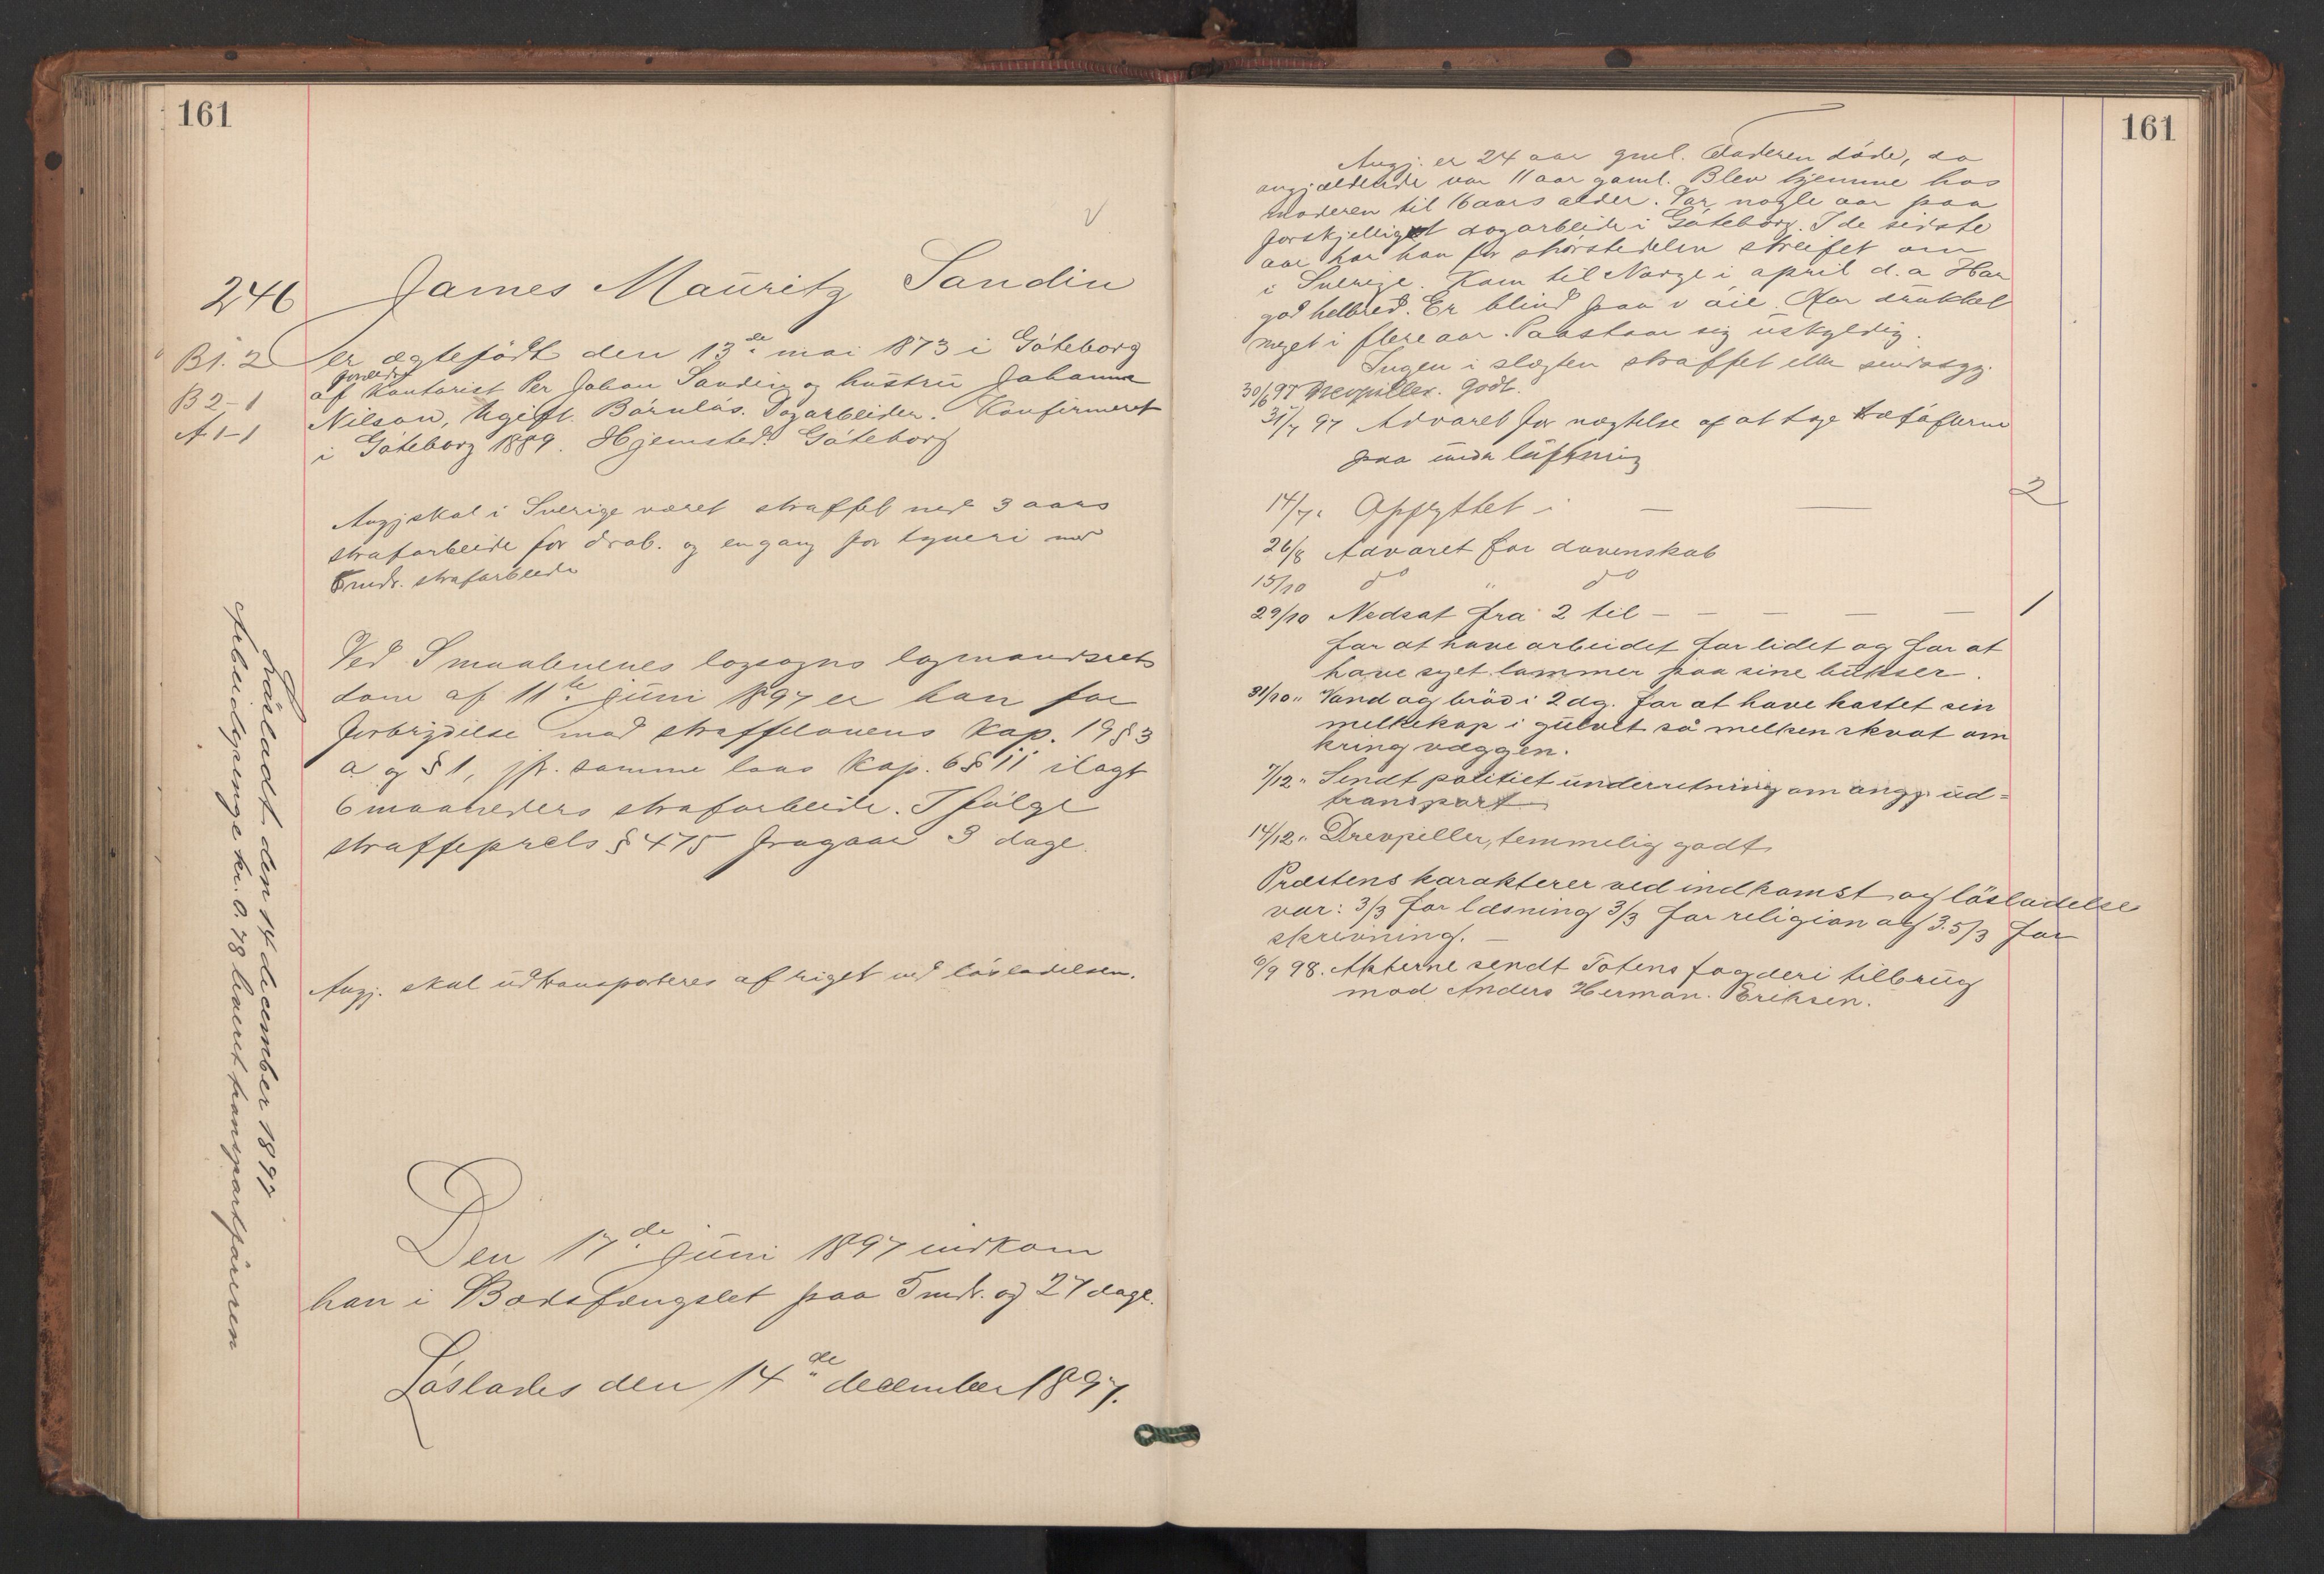 161
246
James Mauritz Sandin
B1. 2
er ægtefödt den 13de mai 1873 i Göteborg
forældre
af Kontorist Per Johan Sandin og hustru Johanna
B 2-1
Nilson, Ugift. Börnlös. Dagarbeider. Konfirmeret
A 1-1
i Göteborg 1889. Hjemsted: Göteborg
Angj skal i Sverige været straffet med 3 aars
strafarbeide for drab. og engang for tyveri med
6 mdr. strafarbeide
Ved Smaalenenes lagsogns lagmandsrets
dom af 11te juni 1897 er han for
forbrydelse mod straffelovens Kap. 19 § 3
a og § 1, jfr. samme lovs Kap. 6 § 11 ilagt
6 maaneders strafarbeide. Ifölge
straffeprcls § 475 fragaar 3 dage.
Angj. skal udtransporteres af riget ved lösladelsen.
Den 17de juni 1897 indkom
han i Bodsfængslet paa 5 mdr. og 27 dage.
Löslades den 14de december 1897.
Lösladt den 14 december 1897
Arbeidspenge kr. 0.78 leveret transportföreren
161
Angj. er 24 aar gml. Faderen döde, da
angjældende var 11 aar gaml. Blev hjemme hos
moderen til 16 aars alder. Var nogle aar paa
forskjelligt dagarbeide i Göteborg. I de sidste
aar har han for störstedelen streifet om
i Sverige. Kom til Norge i april d. a Har
god helbred. Er blind paa v öie. Har drukket
meget i flere aar. Paastaar sig uskyldig.
Ingen i slægten straffet eller sindssyg.
30/6 97 Drevpiller. Godt.
31/7 97 Advaret for nægtelse af at tage træföflerne
paa under luftning
14/7 " Opflyttet i — — 2
26/8 Advaret for dovenskab
15/10 do " do
29/10 Nedsat fra 2 til - - - - - 1
for at have arbeidet for lidet og for at
have syet lommer paa sine bukser.
31/10 " Vand og bröd i 2 dg. for at have kastet sin
melkekop i gulvet så melken skvat om
kring væggen.
7/12 " Sendt politiet underretning om angj. ud=
transport
14/12 " Drevpiller, temmelig godt
Præstens karakterer ved indkomst og lösladelse
var: 3/3 for læsning 3/3 for religion og 3.5/3 for
skrivning. —
6/9 98. Akterne sendt Totens fogderi tilbrug
mod Anders Herman. Eriksen.